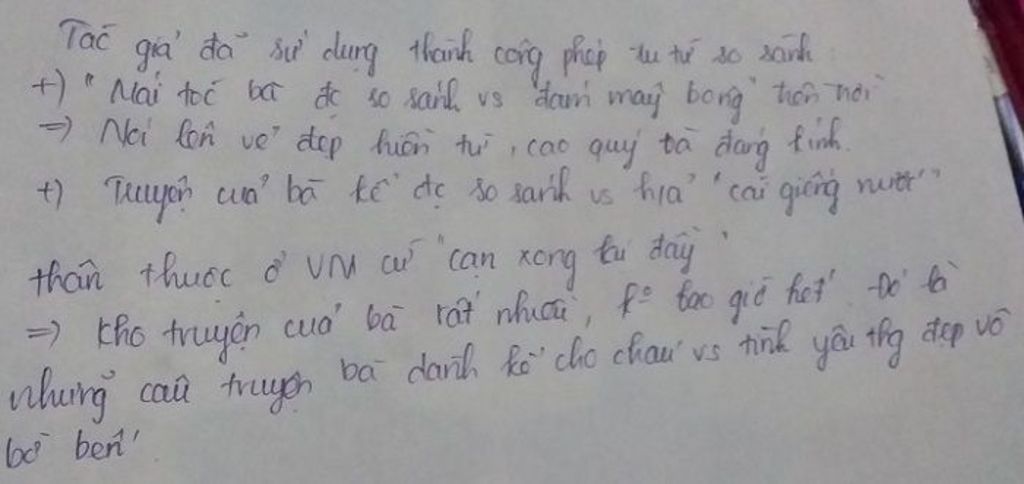 Tác giả đã sử dụng thành công phép tu từ so sánh
+) "Mái tóc bà đc so sánh vs "đám mây bông" trên trời
=> Nói lên vẻ đẹp hiền từ, cao quý bà đáng kính.
+) Truyện của bà kể đc so sánh vs h/ả "cái giếng nước"
thân thuộc ở VN cứ "cạn xong lại đầy"
=> Kho truyện của bà rất nhiều, ko bao giờ hết. Đó là
những câu truyện bà dành kể cho cháu vs tình yêu thg đẹp vô
bờ bến